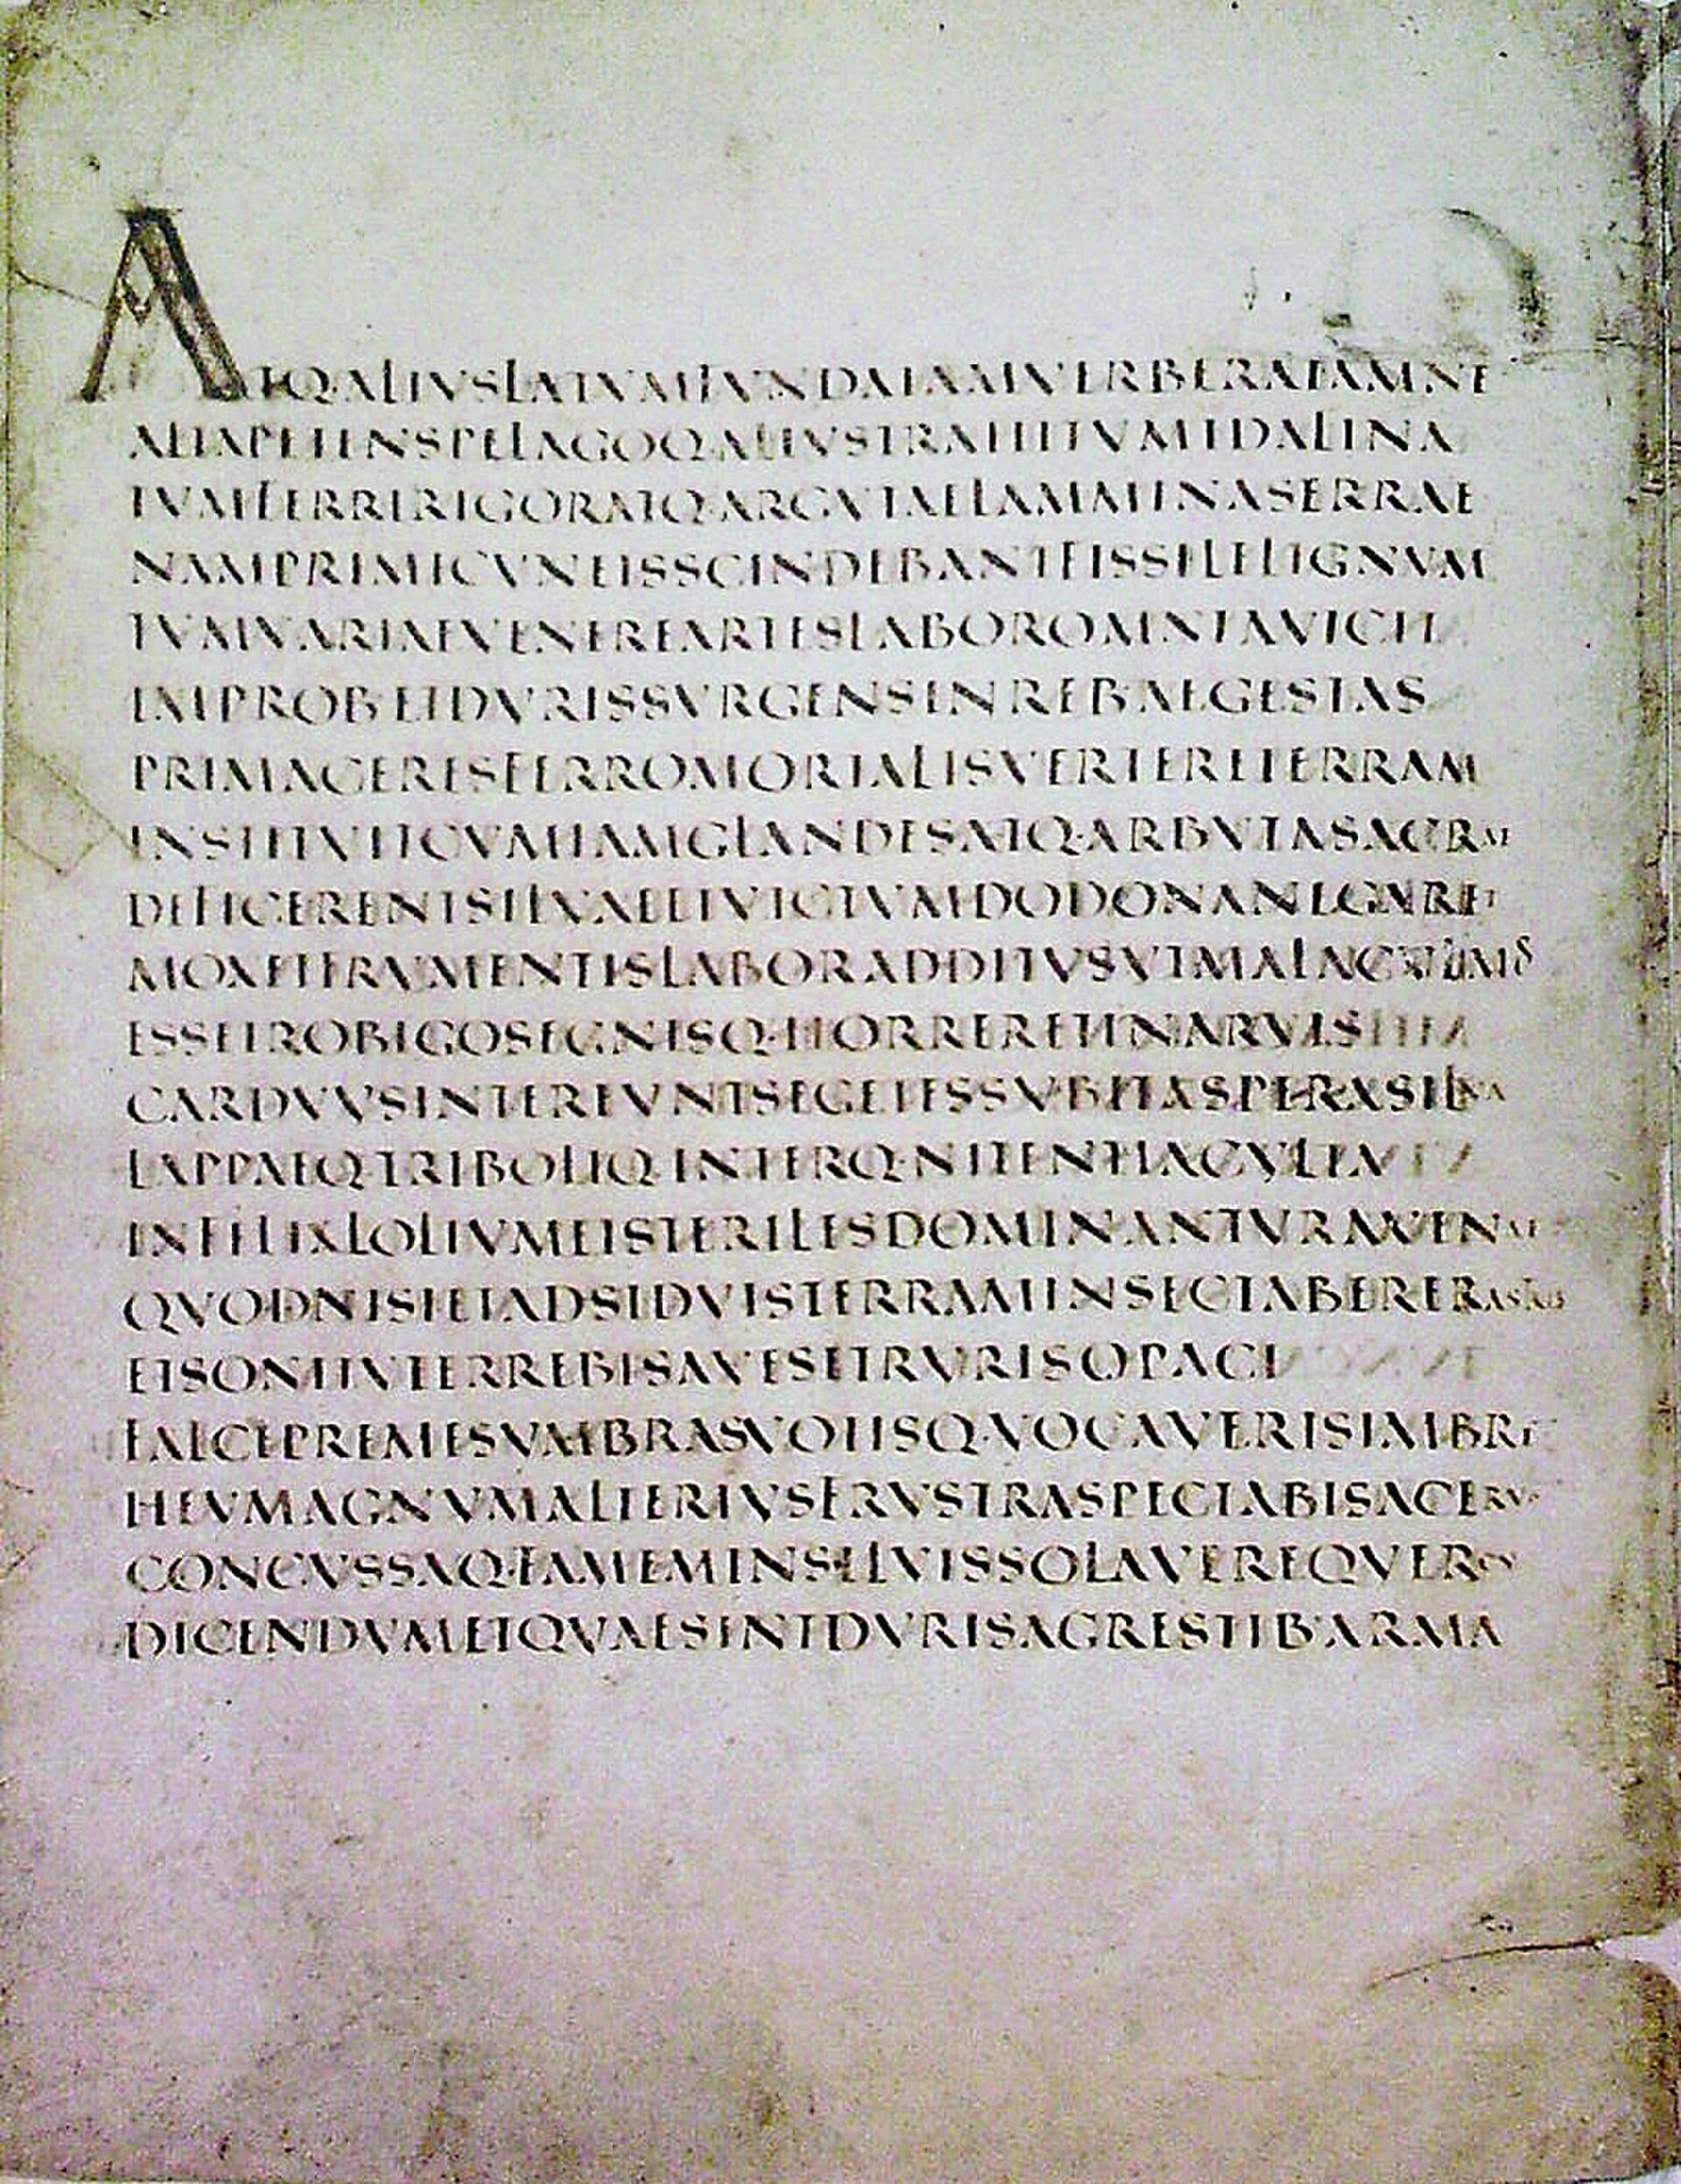 ATQ·ALIVSLATVMFVNDAIAMVERBERATAMNE
ALTAPETENSPELAGOQ·ALIVSTRAHITVMIDALINA
TVMFERRIRIGORATQ·ARGVTAELAMMINASERRAE
NAMPRIMICVNEISSCINDEBANTFISSILELIGNVM
TVMVARIAEVENEREARTESLABOROMNIAVICIT
IMPROB·ETDVRISSVRGENSINREB·AEGESTAS
PRIMACERESFERROMORTALISVERTERETERRAM
INSTITVITCVMIAMGLANDESATQ·ARBVTASACRAE
DEFICERENTSILVAEETVICTVMDODONANEGARET
MOXETFRVMENTISLABORADDITVSVTMALA
ESSETROBIGOSEGNISQ·HORRERETINARVIS
CARDVVSINTEREVNTSEGETESSVBITASPERASILVA
LAPPAEQ·TRIBOLIQ·INTERQ·NITENTIACVLTA
INFELIXLOLIVMETSTERILESDOMINANTVRAVENAE
QVODNISIETADSIDVISTERRAMINSECTABERERASTRIS
ETSONITVTERREBISAVESETRVRISOPACI
FALCEPREMESVMBRASVOTISQ·VOCAVERISIMBRE
HEVMAGNVMALTERIVSFRVSTRASPECTABISACERV·
CONCVSSAQ·FAMEMINSILVISSOLAVEREQVERCV
DICENDVMETQVAESINTDVRISAGRESTIB·ARMA